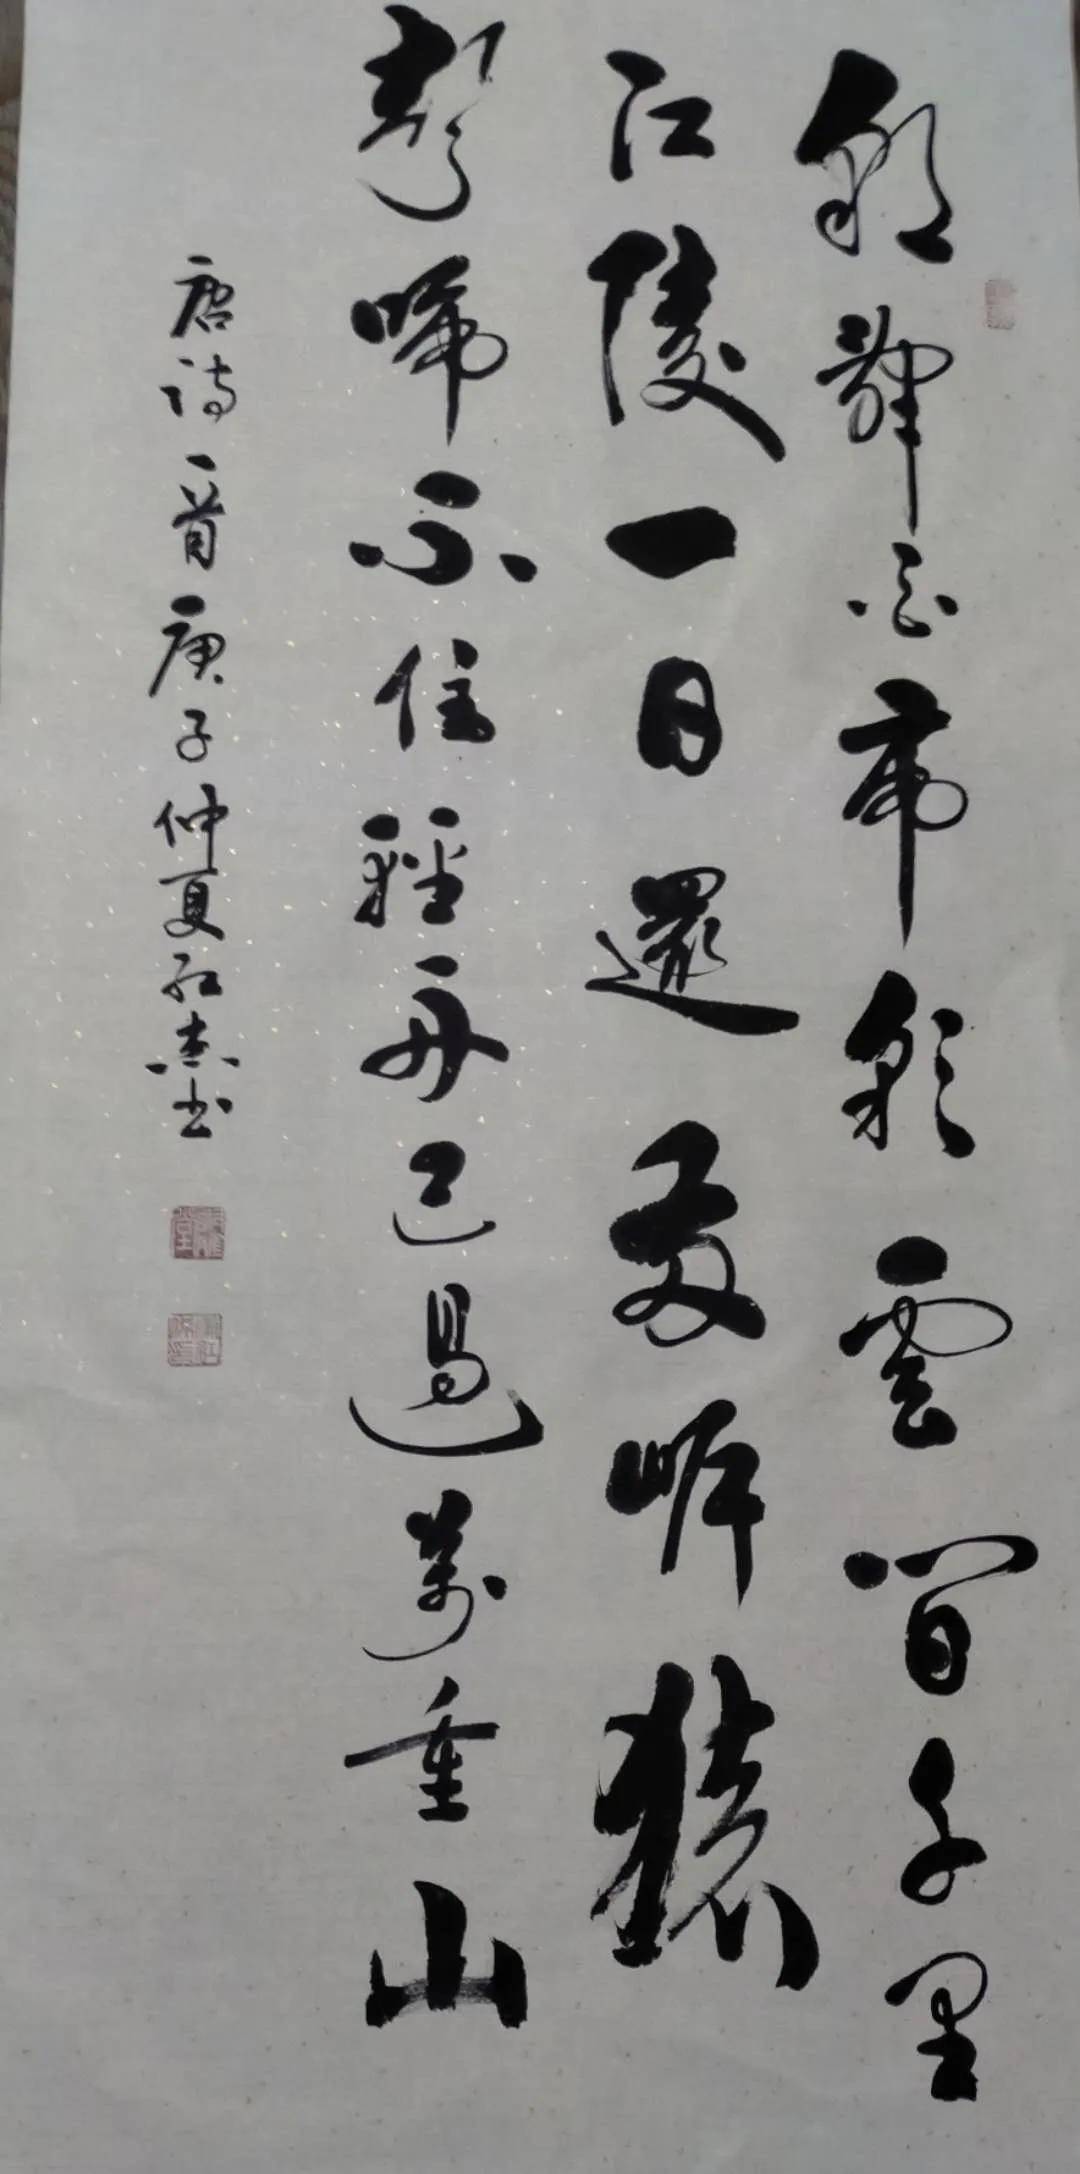 朝辭白帝彩雲間千里
江陵一日還兩岸猿
聲啼不住輕舟已過萬重山
唐诗一首庚子仲夏书